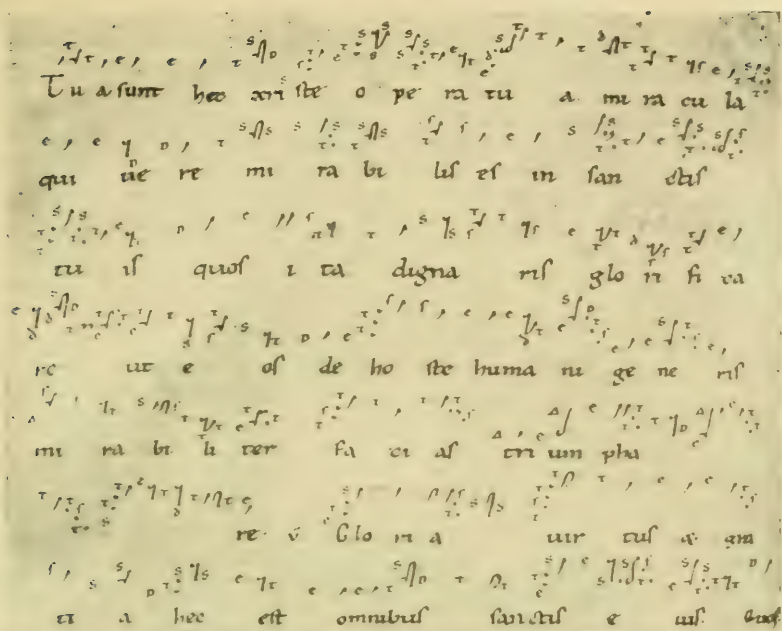 Tu a sunt hec xpi ste o pe ra tu a mi ra cu la
qui ue re mi ra bi lis es in san ctis
tu is quos i ta digna ris glo ri fi ca
re ut e os de ho ste huma ni ge ne ris
mi ra bi li ter fa ci as tri um pha
re v̇ Glo ri a uir tus æ gni
ti a hec est omnibus sanctis e ius. Quos